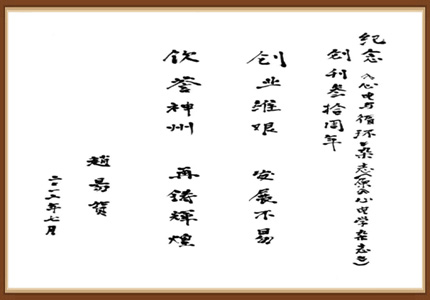 纪念《心电与循环》杂志(原《心电学杂志》)
创刊叁拾周年
创业维艰 发展不易
饮誉神州 再铸辉煌
趙昜贺
二〇一二年七月